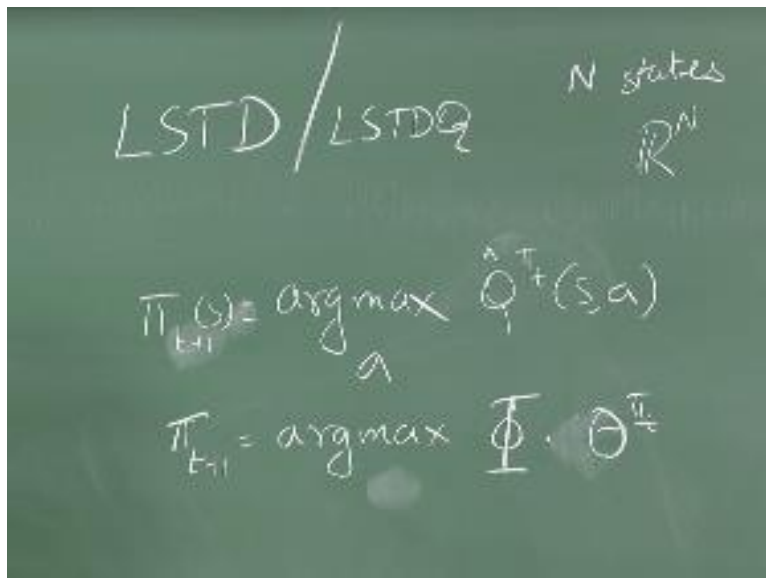 LSTD/LSTDQ
N states
ℝ^N
π_{t+1}(s) = argmax Q̂^{π_t}(s,a)
a
π_{t+1} = argmax Φ · Θ^{π_t}